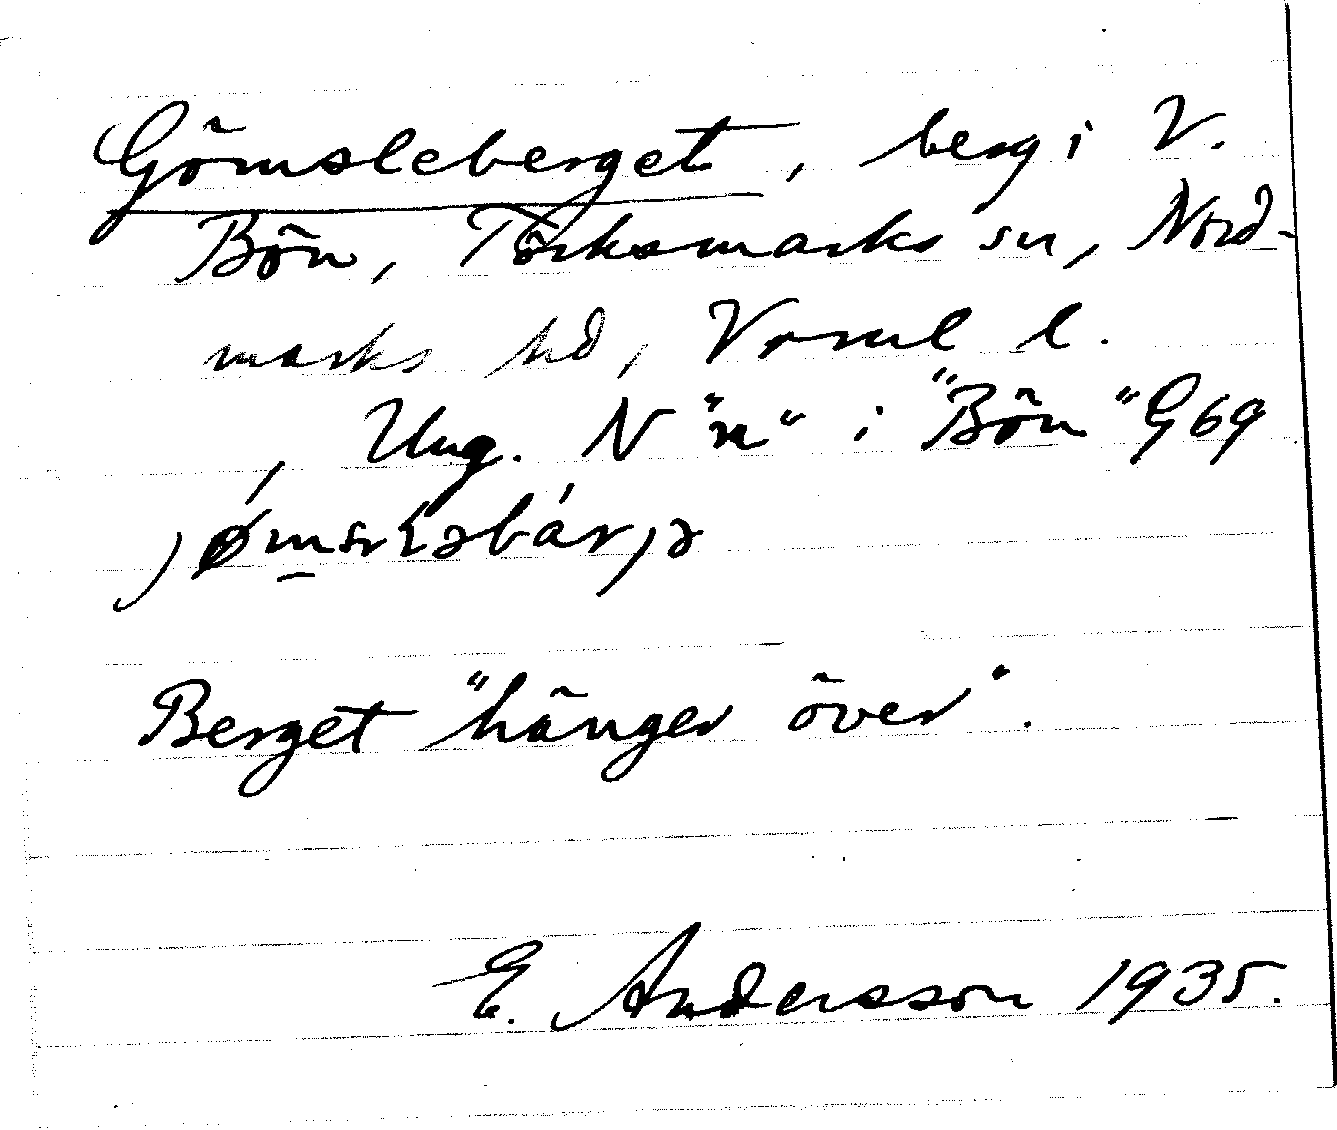 Gömsleberget, berg i V.
Bön, Törksmarks sn, Nord-
marks hd, Vrml l.
, Ung. N "n" i "Bön" G69
Berget "hänger över".
E. Andersson 1935.